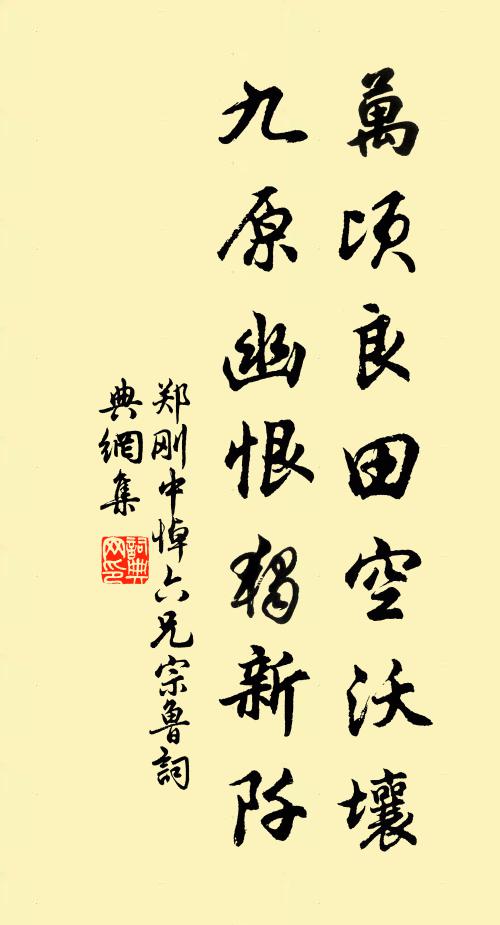 萬頃良田空沃壤
九原幽恨獨新阡
郑刚中悼六兄宗鲁詞
典網集
詞典
网印